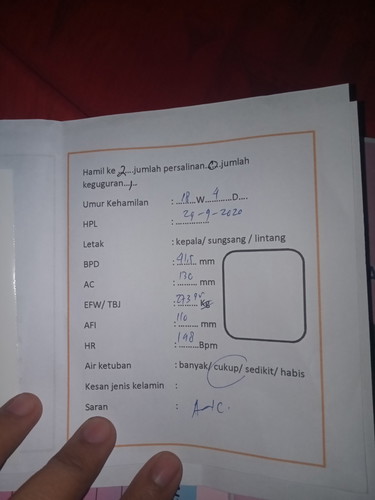 Hamil ke 2 jumlah persalinan 0 jumlah
keguguran 1
Umur Kehamilan : 18 W 4 D
HPL : 29-9-2020
Letak : kepala/ sungsang / lintang
BPD : 41,5 mm
AC : 130 mm
EFW/ TBJ : 273 Kg
AFI : 110 mm
HR : 148 Bpm
Air ketuban : banyak/ cukup/ sedikit/ habis
Kesan jenis kelamin :
Saran :